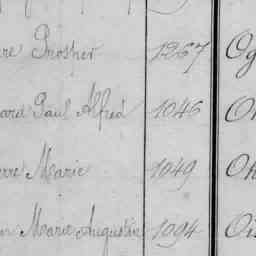 re Prosper 1267 Og
ard Paul Alfred 1046 O
erre Marie 1049 Oh
n Marie Augustin 1094 Oi